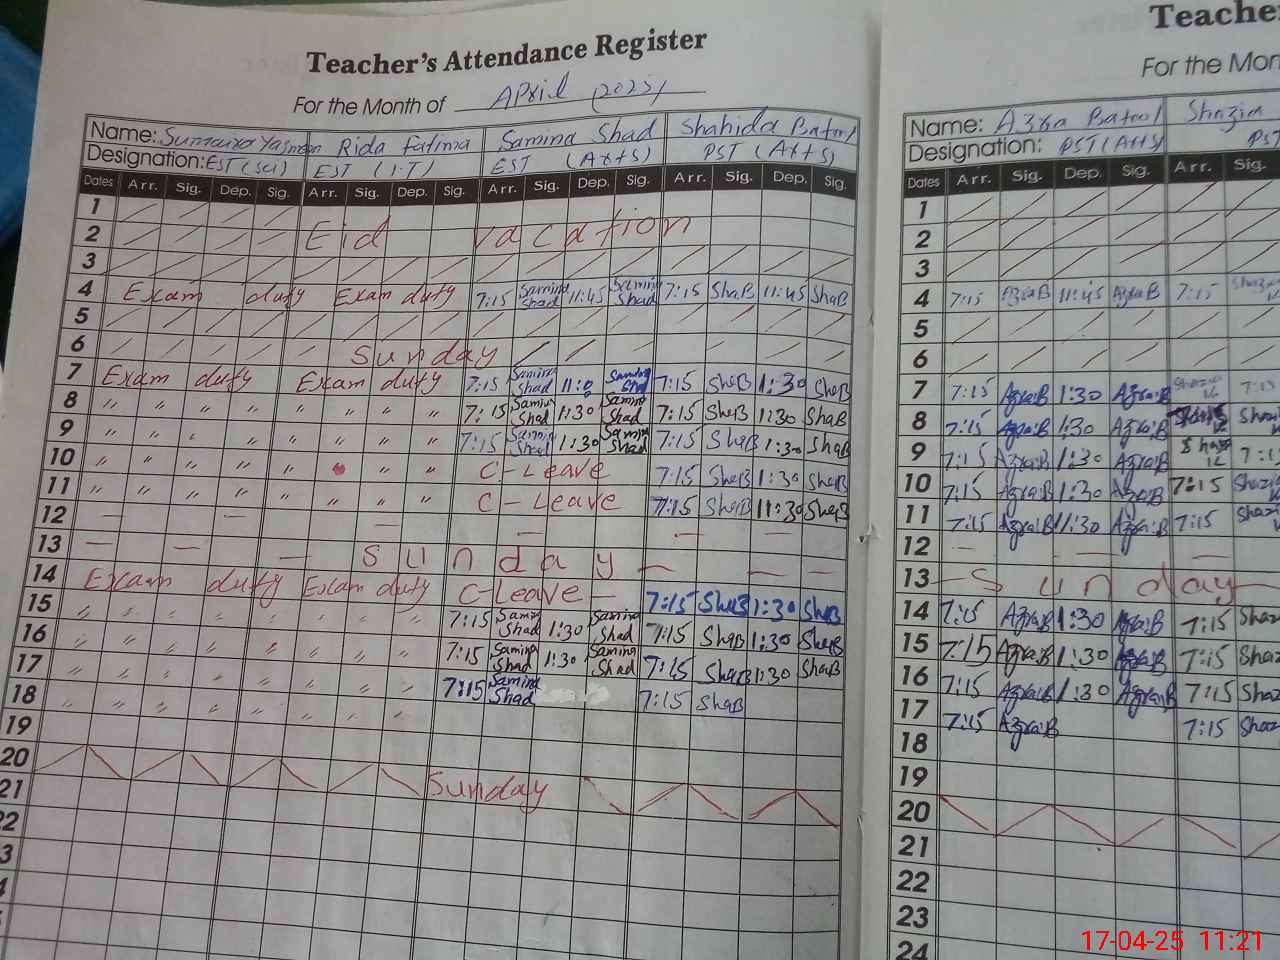 Teacher's Attendance Register
For the Month of April (2025)
Name: Sumaira Yasmeen Rida Fatima Samina Shad Shahida Batool
Designation: EST (Sci) EST (I.T) EST (Arts) PST (Arts)
Dates Arr. Sig. Dep. Sig. Arr. Sig. Dep. Sig. Arr. Sig. Dep. Sig. Arr. Sig. Dep. Sig.
1
2 Eid Vacation
3
4 Exam duty Exam duty 7:15 Samina Shad 11:45 Samina Shad 7:15 ShaB 11:45 ShaB
5
6 Sunday
7 Exam duty Exam duty 7:15 Samina Shad 11:0 Samina Shad 7:15 ShaB 1:30 ShaB
8 " " " " " " " " 7:15 Samina Shad 1:30 Samina Shad 7:15 ShaB 1:30 ShaB
9 " " " " " " " " 7:15 Samina Shad 1:30 Samina Shad 7:15 ShaB 1:30 ShaB
10 " " " " " " " C-Leave 7:15 ShaB 1:30 ShaB
11 " " " " " " " " C-Leave 7:15 ShaB 11:30 ShaB
12
13 Sunday
14 Exam duty Exam duty C-Leave 7:15 ShaB 1:30 ShaB
15 " " " " " " " " 7:15 Samina Shad 1:30 Samina Shad 7:15 ShaB 1:30 ShaB
16 " " " " " " " " 7:15 Samina Shad 1:30 Samina Shad 7:15 ShaB 1:30 ShaB
17 " " " " " " " " 7:15 Samina Shad 7:15 ShaB
18 " " " " " " " "
19
20
21 Sunday
22
3
4
Teache
For the Mon
Name: Azra Batool Shazia
Designation: PST (Arts) PST
Dates Arr. Sig. Dep. Sig. Arr. Sig.
1
2
3
4 7:15 Azra:B 11:45 Azra:B 7:15
5
6
7 7:15 Azra:B 1:30 Azra:B 7:15
8 7:15 Azra:B 1:30 Azra:B
9 7:15 Azra:B 1:30 Azra:B
10 7:15 Azra:B 1:30 Azra:B 7:15
11 7:15 Azra:B 11:30 Azra:B 7:15
12
13 Sunday
14 7:15 Azra:B 1:30 Azra:B 7:15
15 7:15 Azra:B 1:30 Azra:B 7:15
16 7:15 Azra:B 1:30 Azra:B 7:15
17 7:15 Azra:B 7:15
18
19
20
21
22
23
24
17-04-25 11:21